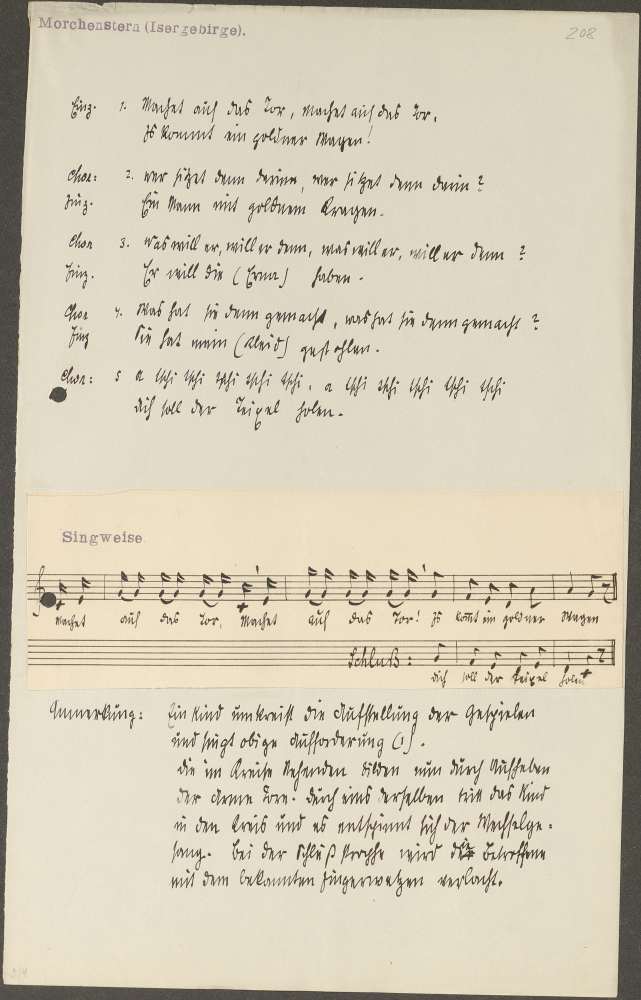 Morchenstern (Isergebirge).
208
Einz. 1. Machet auf das Tor, machet auf das Tor,
Es kommt ein goldner Wagen!
Chor: 2. Wer sitzet denn darinn, wer sitzet denn darin?
Einz. Ein Mann mit goldnem Kragen.
Chor 3. Was will er, will er denn, was will er, will er denn?
Einz. Er will die (Erna) haben.
Chor 4. Was hat sie denn gemacht, was hat sie denn gemacht?
Einz Sie hat mein (Kleid) gestohlen.
Chor: 5 A tschi tschi tschi tschi tschi, a tschi tschi tschi tschi tschi
dich soll der Teixel holen.
Singweise
Machet auf das Tor, Machet auf das Tor! Es kommt ein goldner Wagen
Schluß:
dich soll der Teixel holen
Anmerkung: Ein Kind umkreist die Aufstellung der Gespielen
und singt obige Aufforderung (1).
Die im Kreise stehenden bilden nun durch Aufheben
der Arme Tore. Durch eins derselben tritt das Kind
in den Kreis und es entspinnt sich der Wechselge-
sang. Bei der Schlußstrophe wird die Betroffene
mit dem bekannten Fingerwetzen verlacht.